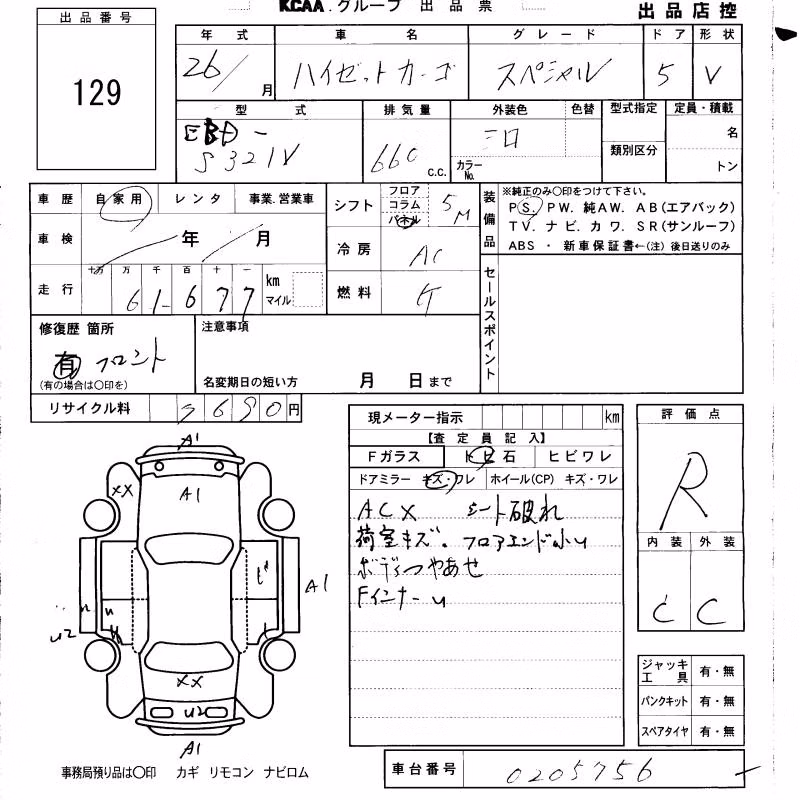 KCAA.グループ 出品票
出品店控
出品番号
129
年式 車名 グレード ドア 形状
26/ 月 ハイゼットカーゴ スペシャル 5 V
型式 排気量 外装色 色替 型式指定 定員・積載
EBD-
S321V
660 c.c.
シロ
カラーNo.
類別区分
名
トン
車歴 自家用 レンタ 事業.営業車
シフト フロア コラム パネル 5M
装備品
※純正のみ〇印をつけて下さい。
PS. PW. 純AW. AB(エアバック)
TV. ナビ. カワ. SR(サンルーフ)
ABS ・ 新車保証書←(注) 後日送りのみ
車検 年 月
冷房 AC
走行 十万 万 千 百 十 一 km マイル
61677
燃料
セールスポイント
修復歴 箇所
有 フロント
(有の場合は〇印を)
注意事項
名変期日の短い方 月 日まで
リサイクル料 円
現メーター指示 km
【査定員記入】
Fガラス トビ石 ヒビワレ
ドアミラー キズ・ワレ ホイール(CP) キズ・ワレ
ACX シート破れ
荷室キズ. フロアエンド小U
ボディつやあせ
FインナーU
評価点
R
内装 外装
C C
A1
XX
A1
A1
U2
XX
U2
A1
ジャッキ工具 有・無
パンクキット 有・無
スペアタイヤ 有・無
事務局預り品は〇印 カギ リモコン ナビロム
車台番号 0205756